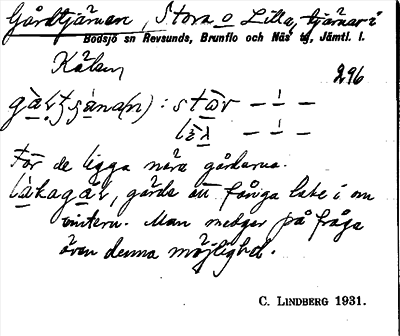 Gårdtjärnen, Stora o Lilla, tjärnar i
Bodsjö sn Revsunds, Brunflo och Näs tg, Jämtl. l.
Kälen
296
stœr — ı —
— ı —
För de ligga nära gårdarna.
gårda att fånga lake i om
vintern. Man medger på fråga
även denna möjlighet.
C. LINDBERG 1931.